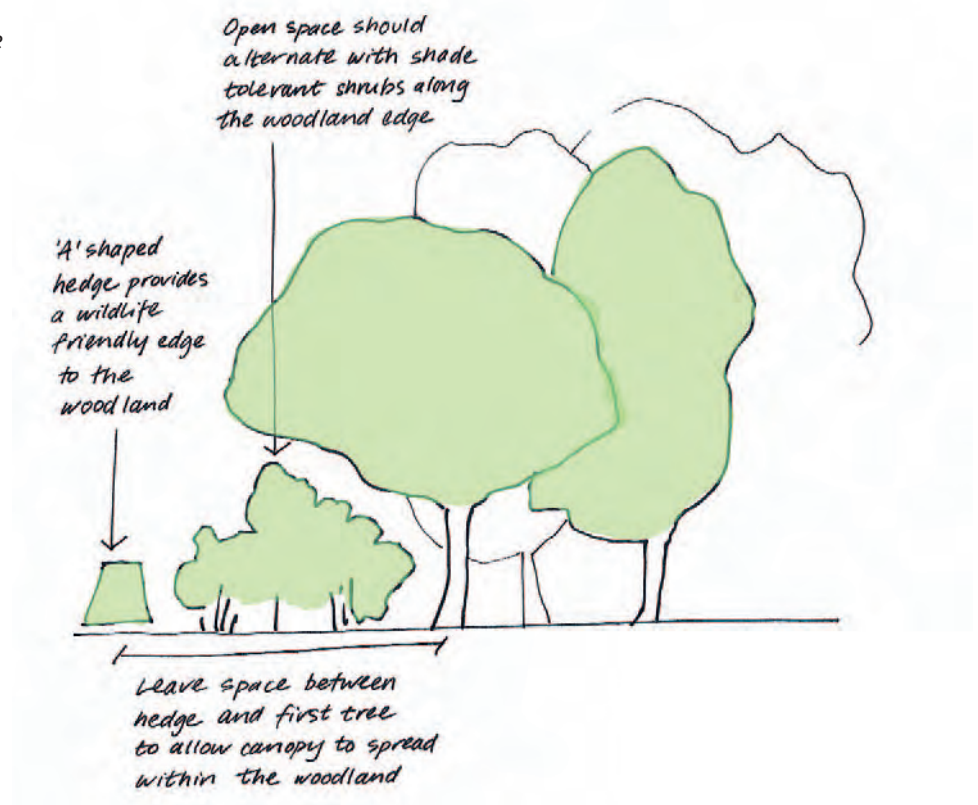 Open space should
alternate with shade
tolerant shrubs along
the woodland edge
'A' shaped
hedge provides
a wildlife
friendly edge
to the
woodland
Leave space between
hedge and first tree
to allow canopy to spread
within the woodland